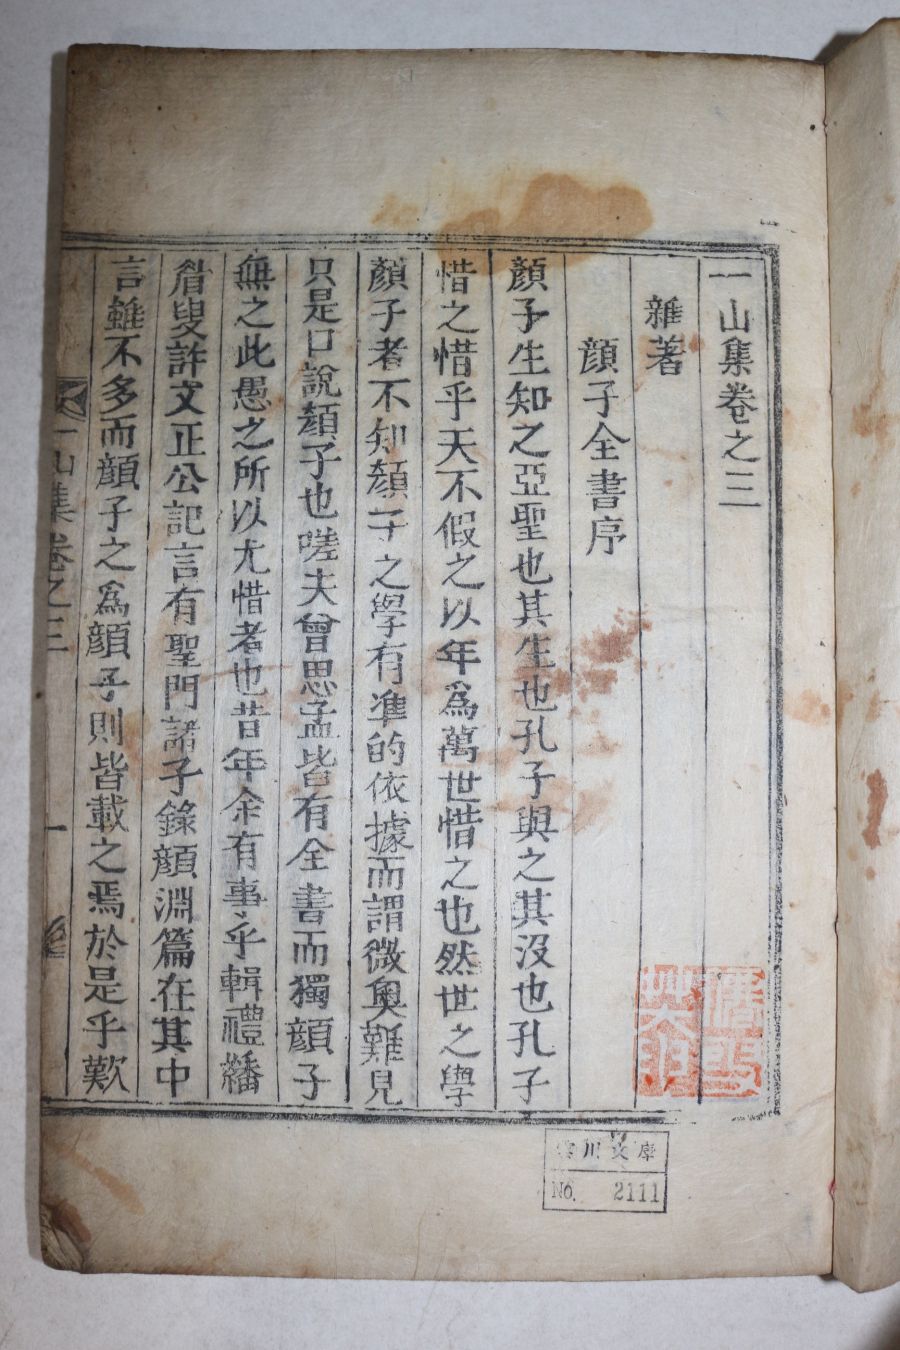 一山集卷之三
雜著
顔子全書序
顔子生知之亞聖也其生也孔子與之其沒也孔子
惜之惜乎天不假之以年爲萬世惜之也然世之學
顔子者不知顔子之學有準的依據而謂微奧難見
只是口說顔子也嗟夫曾思孟皆有全書而獨顔子
無之此愚之所以尤惜者也昔年余有事乎輯禮繙
眉叟許文正公記言有聖門諸子錄顔淵篇在其中
言雖不多而顔子之爲顔子則皆載之焉於是乎歎
一山集卷之三
一
川文庫
No. 2111